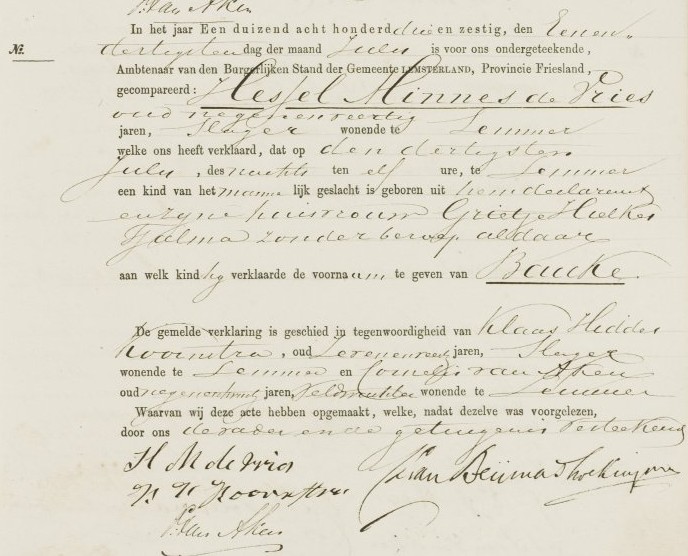 van Aken
In het jaar Een duizend acht honderd drie en zestig, den Eenen
No. dertigsten dag der maand July is voor ons ondergeteekende,
Ambtenaar van den Burgerlijken Stand der Gemeente LEMSTERLAND, Provincie Friesland,
gecompareerd: Hessel Minnes de Vries
oud negenenveertig
jaren, Slager wonende te Lemmer
welke ons heeft verklaard, dat op den dertigsten
July, des nachts ten elf ure, te Lemmer
een kind van het manne lijk geslacht is geboren uit hem declarant
en zyne huisvrouw Grietje Hielkes
Tjalma zonder beroep aldaar
aan welk kind hy verklaarde de voornaam te geven van Baucke.
De gemelde verklaring is geschied in tegenwoordigheid van Klaas Hiddes
Koornstra, oud zevenenveertig jaren, Slager
wonende te Lemmer en Cornelis van Aken
oud jaren, Veldwachter wonende te Lemmer
Waarvan wij deze acte hebben opgemaakt, welke, nadat dezelve was voorgelezen,
door ons de vader en de getuigen is geteekend
H M de Vries
K H Koornstra van Beijma Thoe Kingma
van Aken